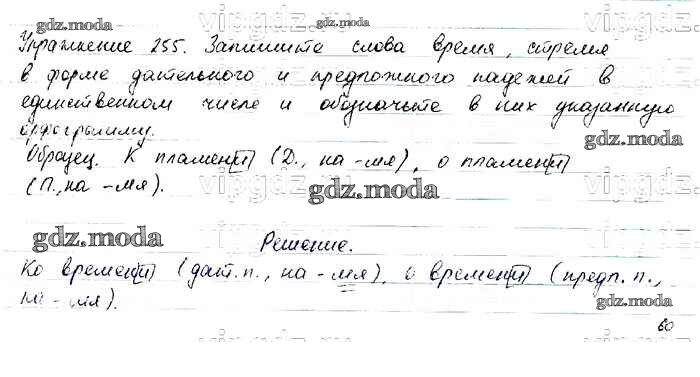 Упражнение 255. Запишите слова время, стремя
в форме дательного и предложного падежей в
единственном числе и обозначьте в них указанную
орфограмму.
Образец. К пламени (Д., на -мя), о пламени
(П., на -мя).
Решение.
Ко времени (дат. п., на -мя), о времени (предл. п.,
на -мя).
60
gdz.moda
gdz.moda
gdz.moda
gdz.moda
gdz.moda
gdz.moda
vipgdz